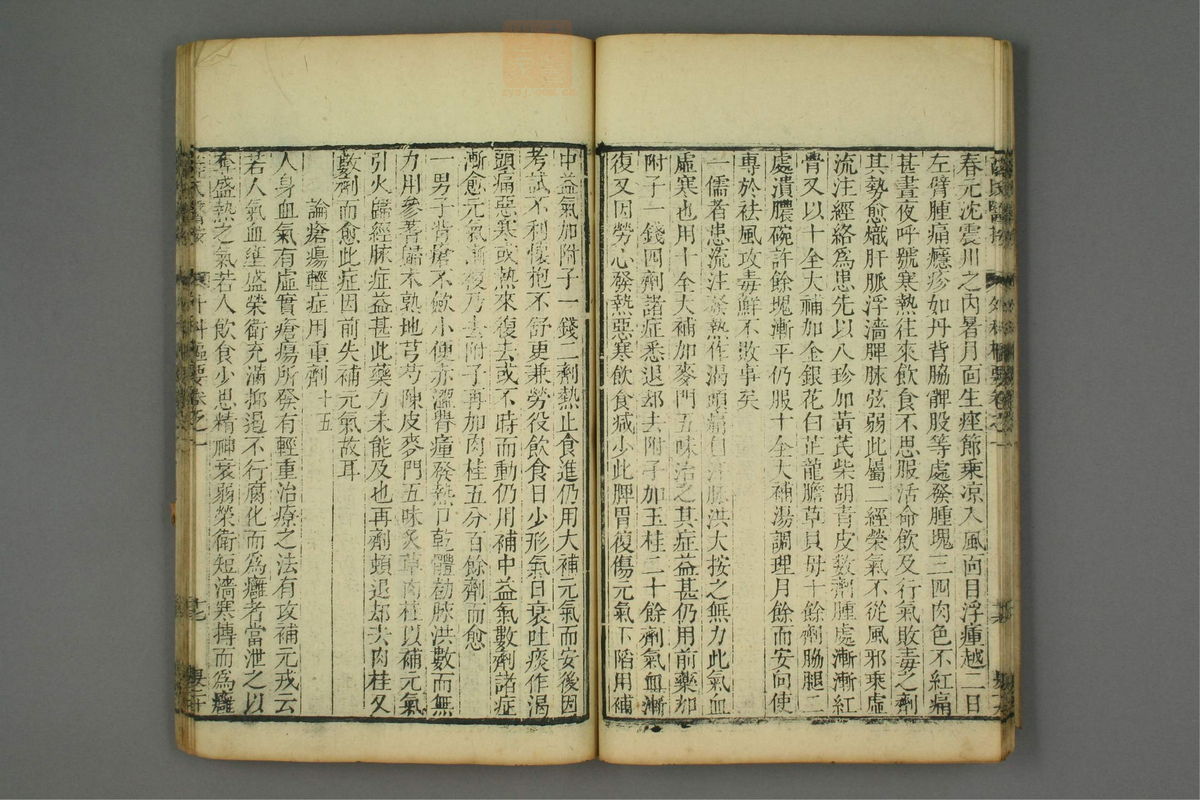 春元沈震川之内暑月面生痤節乘凉入風面目浮腫越二日
左臂腫痛癮疹如丹背脇髀股等處發腫塊三四肉色不紅痛
甚晝夜呼號寒熱往來飲食不思服活命飲及行氣敗毒之劑
其勢愈熾肝脈浮濇脾脉弦弱此屬二經榮氣不從風邪乘虚
流注經絡爲患先以八珍加黄芪柴胡青皮数劑腫處漸漸紅
骨又以十全大補加金銀花白芷龍膽草貝母十餘劑脇腿二
處潰膿碗許餘塊漸平仍服十全大補湯調理月餘而安向使
專於祛風攻毒鮮不敗事矣
一儒者患流注發熱作渴頭痛自汗脉洪大按之無力此氣血
虚寒也用十全大補加麥門五味治之其症益甚仍用前藥加
附子一錢四劑諸症悉退却去附子加玉桂二十餘劑氣血漸
復又因勞心發熱惡寒飲食減少此脾胃復傷元氣下陷用補
中益氣加附子一錢二劑熱止食進仍用大補元氣而安後因
考試不利懷抱不舒更兼勞役飲食日少形氣日衰吐痰作渴
頭痛惡寒或熱來復去或不時而動仍用補中益氣數劑諸症
漸愈元氣漸復乃去附子再加肉桂五分百餘劑而愈
一男子背瘡不斂小便亦澀臀瘇發熱口乾體勌脉洪數而無
力用參芪歸朮熟地芎芍陳皮麥門五味炙草肉桂以補元氣
引火歸經脉症益甚此藥力未能及也再劑頓退却去肉桂又
數劑而愈此症因前失補元氣故耳
論瘡瘍輕症用重劑 十五
人身血氣有虚實瘡瘍所發有輕重治療之法有攻補元戎云
若人氣血壅盛榮衛充滿抑遏不行腐化而爲癰者當泄之以
奪盛熱之氣若人飲食少思精神衰弱榮衛短濇寒搏而爲癰
薛氏醫按
外科樞要卷之一